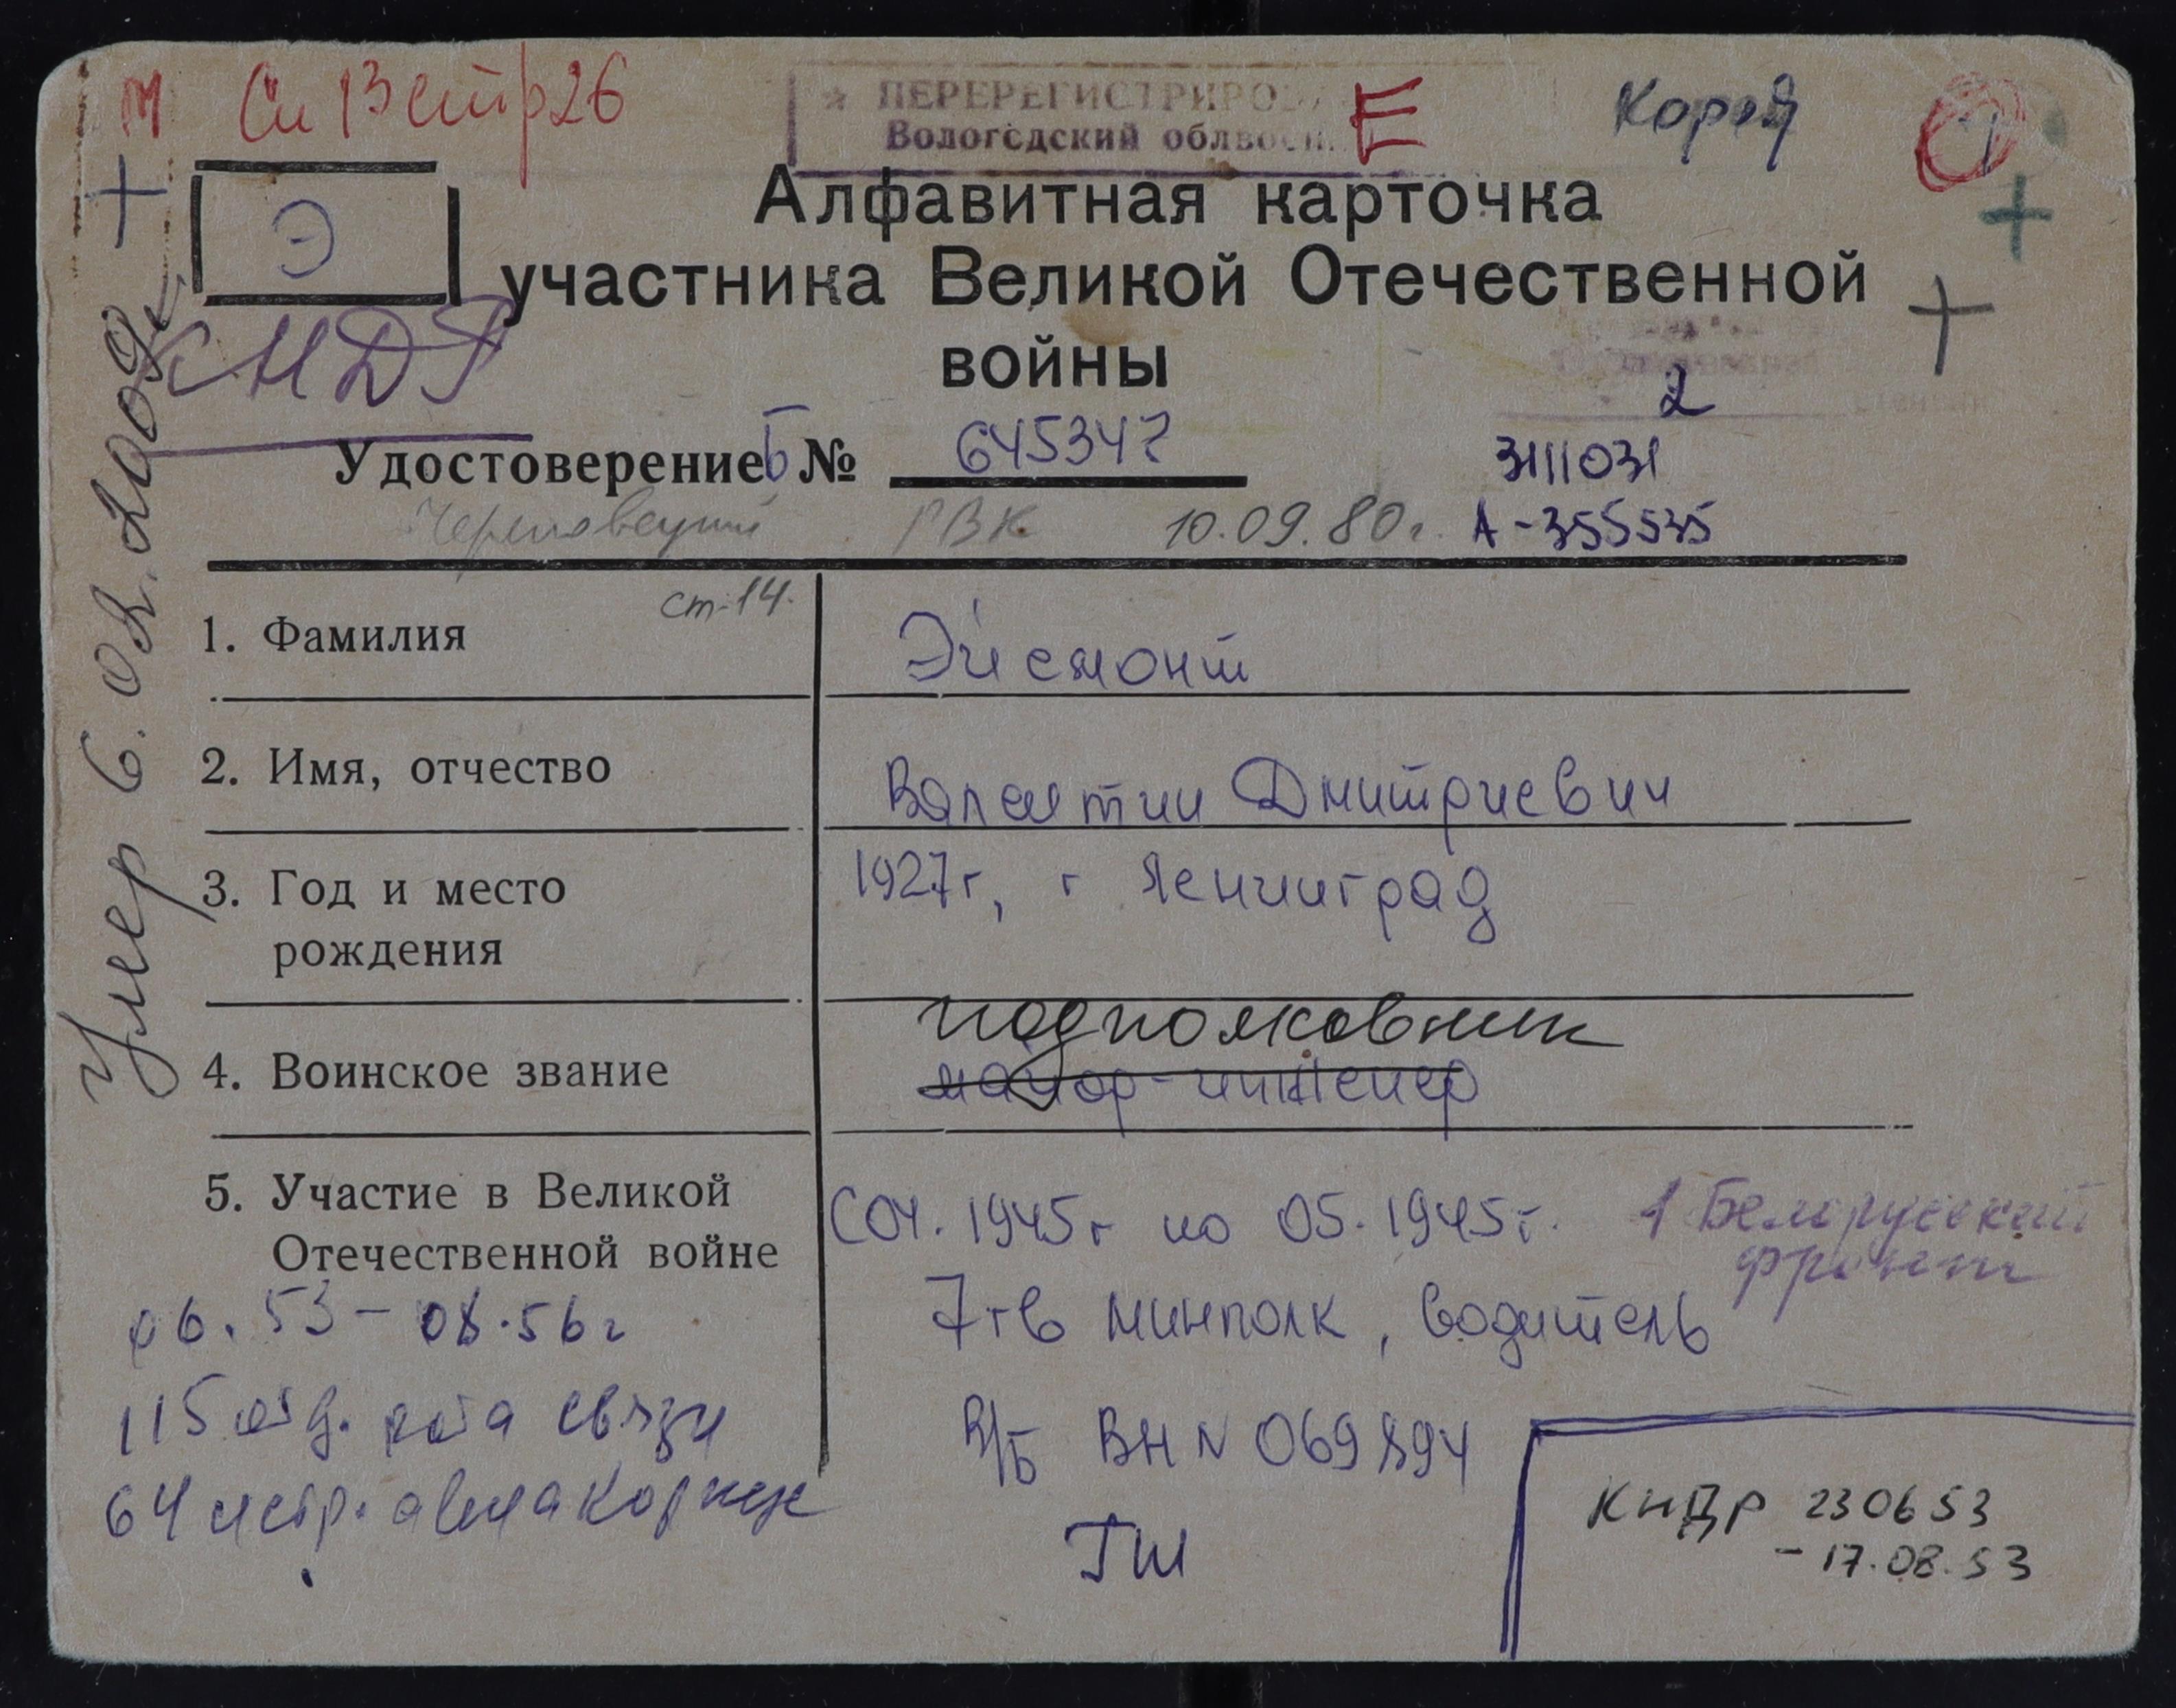 М Сп 13 стр 26
ПЕРЕРЕГИСТРИРО
Вологодский облвоен
Е
Корея
Э
Алфавитная карточка
участника Великой Отечественной
войны
2
Удостоверение Б № 645347
3111031
Череповецкий РВК 10.09.80 г.
А-355535
ст-14.
1. Фамилия
Эйсмонт
2. Имя, отчество
Валентин Дмитриевич
3. Год и место
рождения
1927г, г Ленинград
4. Воинское звание
подполковник
майор-инженер
5. Участие в Великой
Отечественной войне
С 04.1945г по 05.1945г.
1 Белорусский
фронт
7 гв минполк, водитель
В/Б ВН N 069894
ГШ
06.53 - 08.56 г
115 отд. рота связи
64 истр. авиакорпус
КНДР 230653
- 17.08.53
Умер 6.02.2009г